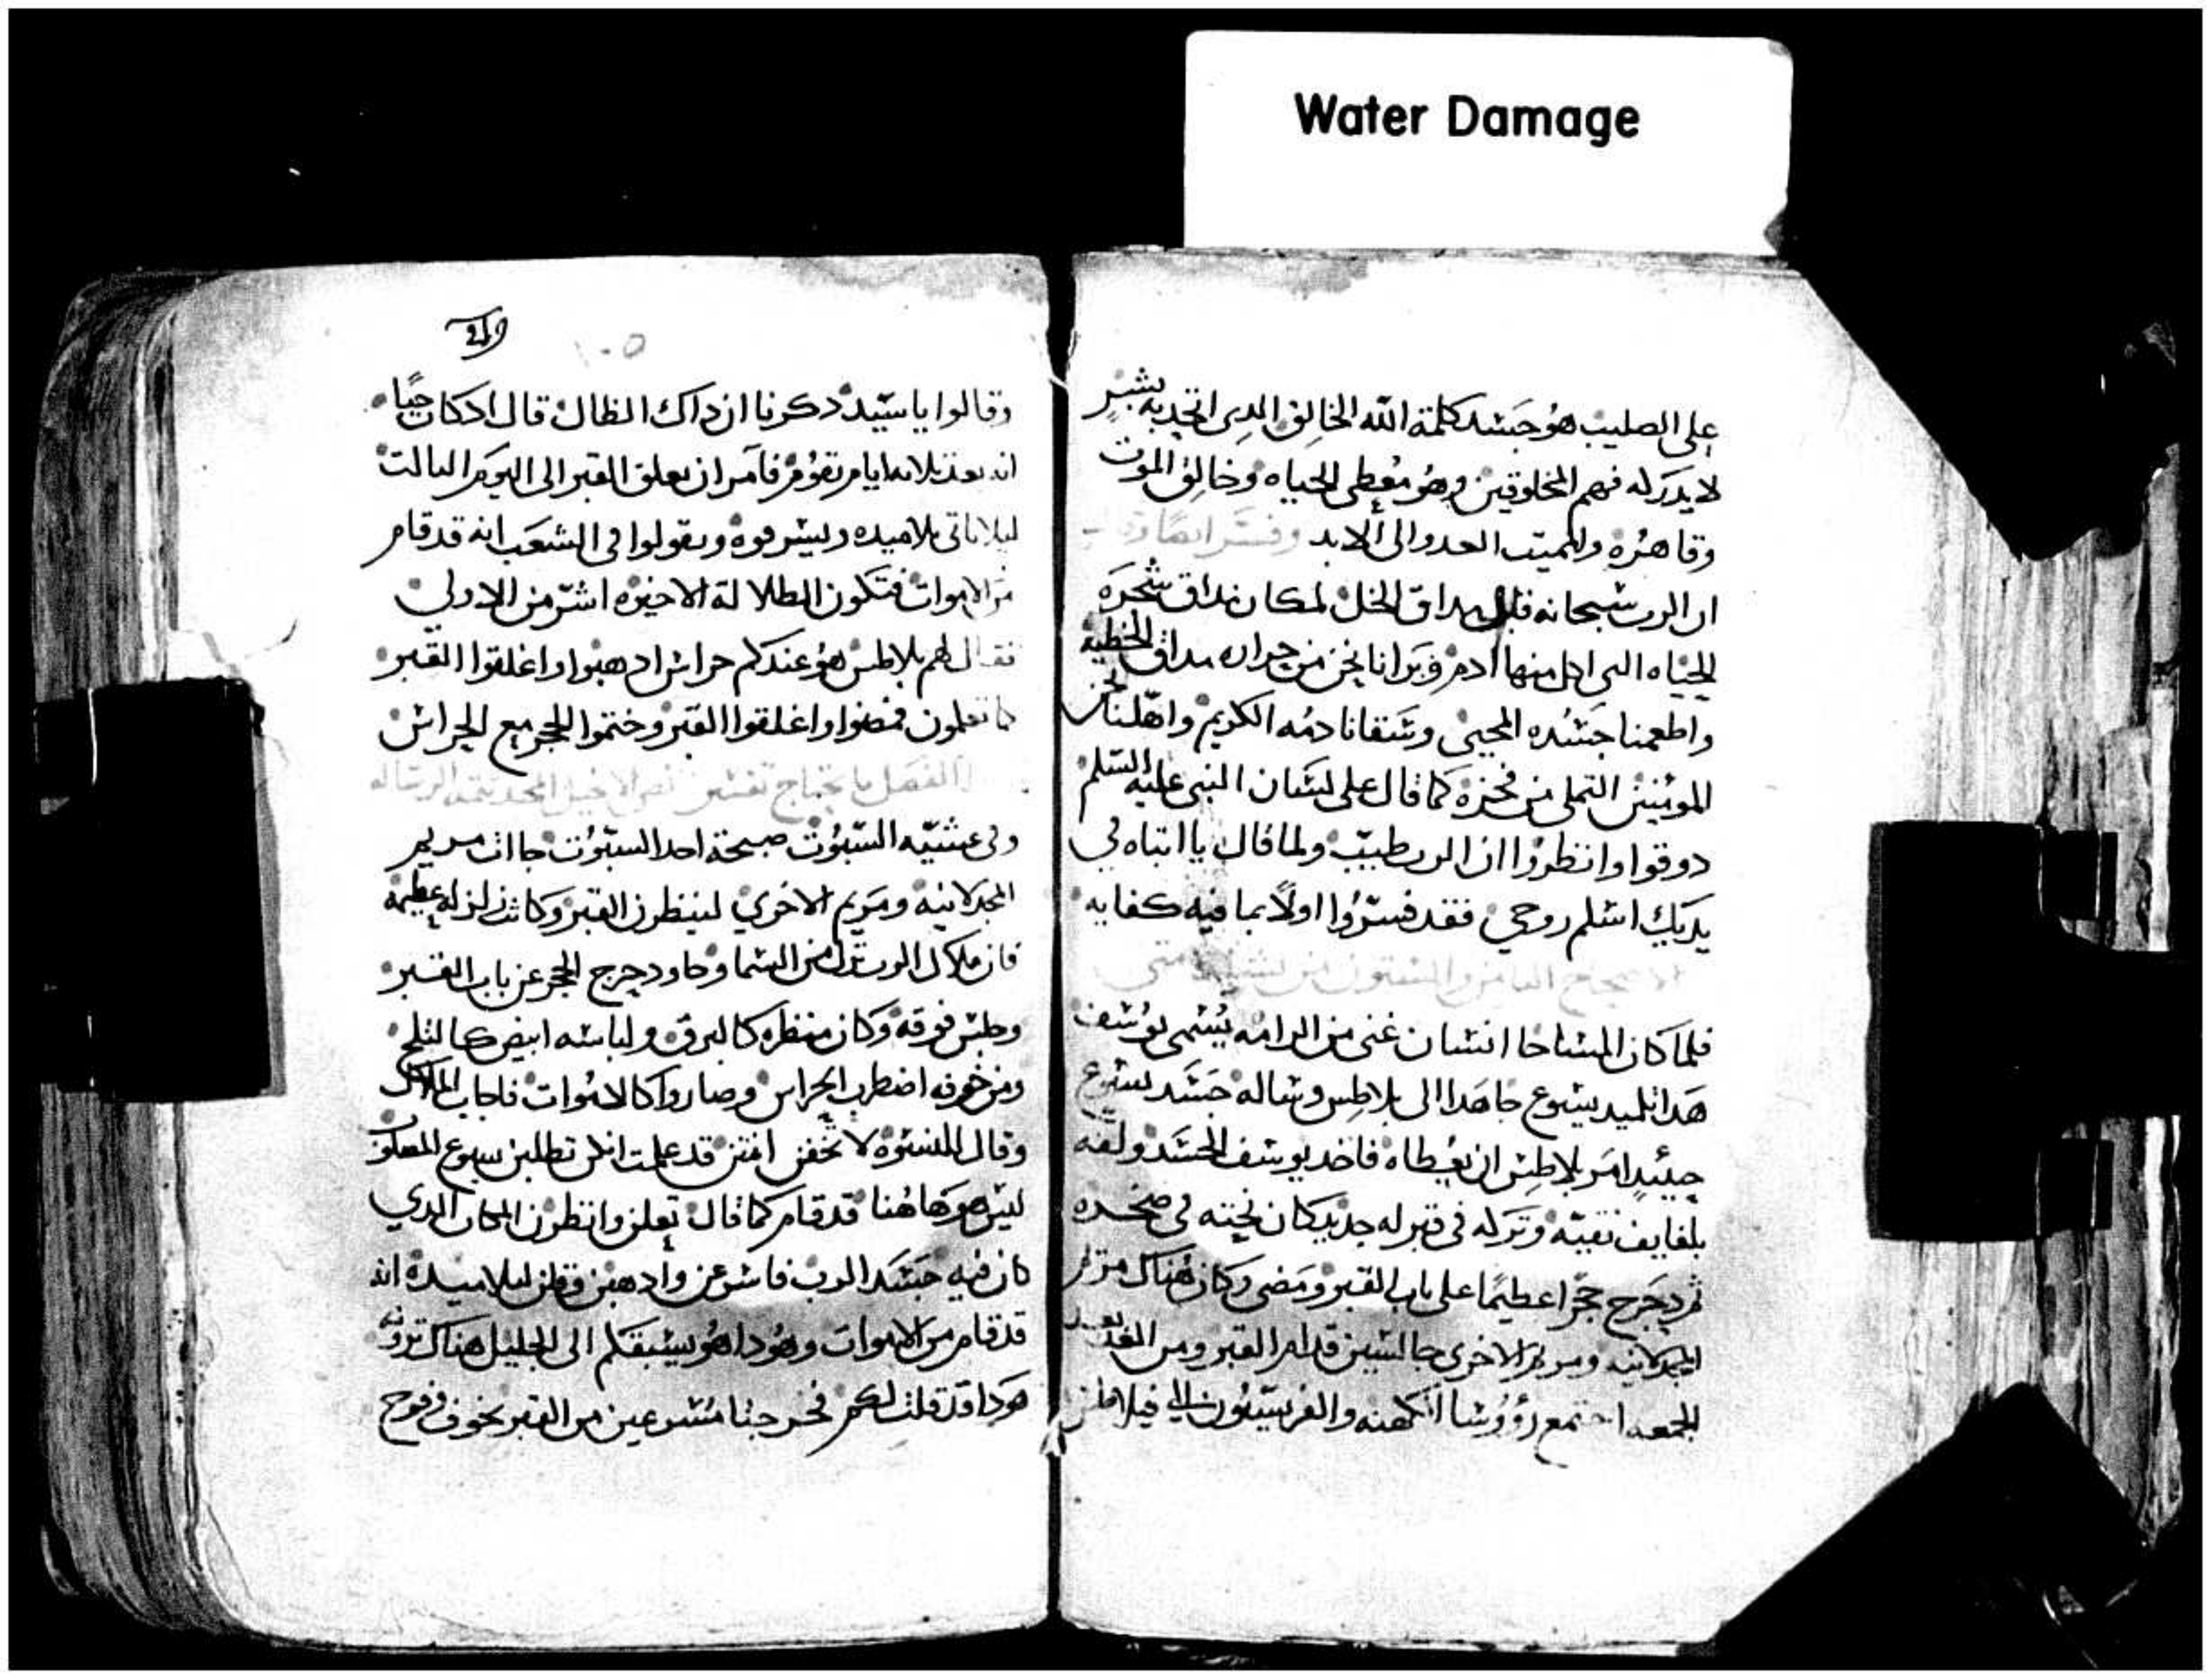 Water Damage
على الصليب هو جسد كلمة الله الخالق الدى اتحد به بسر
لا يدركه فهم المخلوقين وهو معطى الحياه وخالق الموت
وقاهره والمميت العدو الى الابد وفسر ايضا
ان الرب سبحانه قبل مداق الخل لمكان مداق شجرة
الحياه التى اكل منها ادم وبرانا نحن من جراه مداق الخطية
واطعمنا جسده المحيى وسقانا دمه الكريم واهلنا نحن
المومنين التملى من فخره كما قال على لسان النبى عليه السلم
دوقوا وانظروا ان الرب طيب ولما قال يا ابتاه في
يديك اسلم روحي فقد فسروا اولاً بما فيه كفايه
الاصحاح التامن والستون من بشارة متى
فلما كان المسا جا انسان غنى من الرامه يسمى يوسف
هدا تلميد يسوع جا هدا الى بلاطس وساله جسد يسوع
حينيدٍ امر بلاطس ان يعطاه فاخد يوسف الجسد ولفه
بلفايف نقيه وتركه في قبر له جديد كان نحته في صخره
ثم دحرج حجرا عظيمًا على باب القبر ومضى وكان هناك مريم
المجدلانيه ومريم الاخرى جالسين قدام القبر ومن الغد بعد
الجمعه اجتمع رووسا الكهنه والفريسيون الي فيلاطس
٢٤٩
١٠٥
وقالوا يا سيد دكرنا ان داك الظال قال ادكان حيًا
انه بعد تلاته ايام يقوم فآمر ان يغلق القبر الى اليوم التالت
ليلا ياتى تلاميده ويسرقوه ويقولوا فى الشعب انه قد قام
من الاموات فتكون الظلالة الاخيره اشر من الاولي
فقال لهم بلاطس هو عندكم حراس ادهبوا واغلقوا القبر
كما تعلمون فمضوا واغلقوا القبر وختموا الحجر مع الحراس
الفصل ما يحتاج تفسير نص الانجيل
وفى عشيه السبوت صبيحة احد السبوت جاات مريم
المجدلانيه ومريم الاخري لينظرن القبر وكانت زلزله عظيمة
فان ملاك الرب نزل من السما وجا ودحرج الحجر عن باب القبر
وجلس فوقه وكان منظره كالبرق ولباسه ابيض كالثلج
ومن خوفه اضطرب الحراس وصاروا كالاموات فاجاب الملاك
وقال للنسوه لا تخفن انتن قد علمت انكن تطلبن يسوع المصلوب
ليس هو هاهنا قد قام كما قال تعلن وانظرن المكان الدي
كان فيه جسد الرب فاسرعن وادهبن وقلن لتلاميده انه
قد قام من الاموات وهودا هو يسبقكم الى الجليل هناك ترونه
هودا قد قلت لكم فخرجنا مسرعين من القبر بخوف وفرح